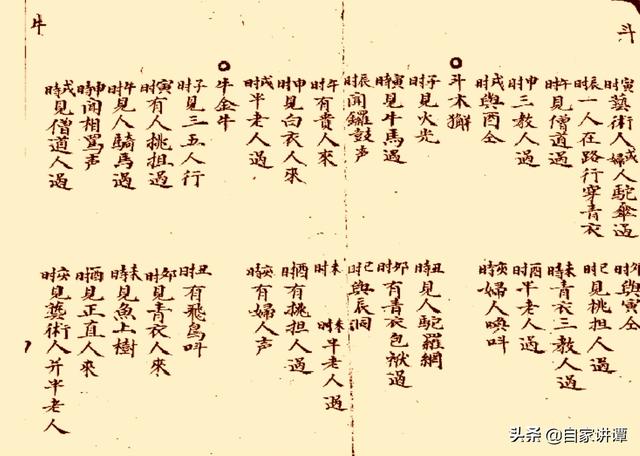 斗
寅时藝術人或婦人駝傘過
卯时與寅仝
辰时一人在路行穿青衣
巳时見挑担人過
午时見僧道過
未时青衣三教人過
申时三教人過
酉时半老人過
戌时與酉仝
亥时婦人喚呌
斗木獬
子时見火光
丑时見人駝羅網
寅时見牛馬過
卯时有青衣包袱過
辰时聞鑼鼓声
巳时與辰同
午时有貴人來
未时
未时半老人過
申时見白衣人來
酉时有挑担人過
戌时半老人過
亥时有婦人声
牛金牛
子时見三五人行
丑时有飛鳥呌
寅时有人挑担過
卯时見青衣人來
午时見人騎馬過
未时見魚上樹
申时聞相罵声
酉时見正直人來
戌時見僧道人過
亥时見藝術人并半老人
牛
头条 @自家讲谭